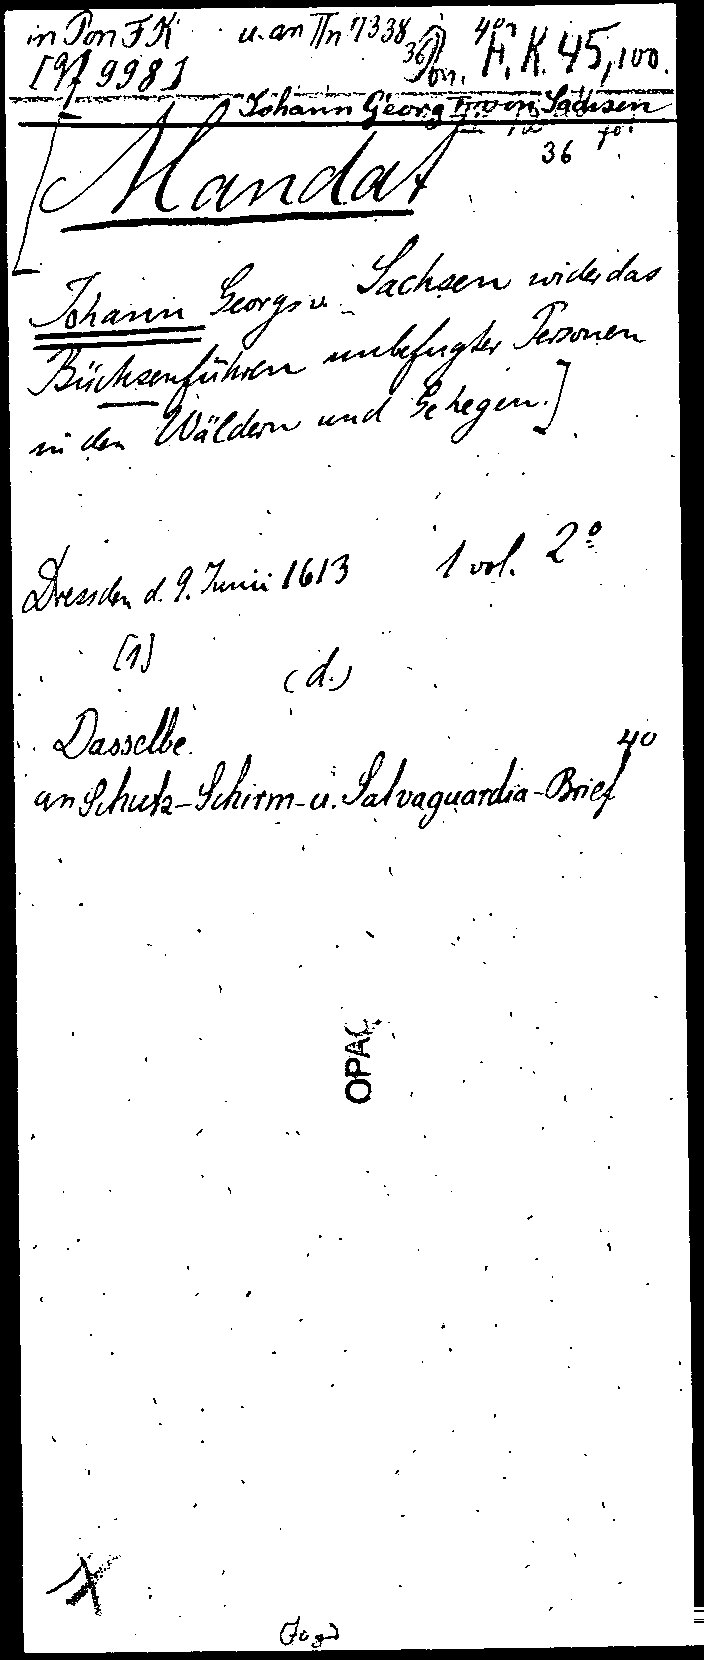 in Pon F K u. an IIn 7338 36 40
[9/ 998] Pon. H. K. 45,100.
Johann Georg von Sachsen
36 40
[Mandat
Johann Georgs v. Sachsen wider das
Büchsenführen unbefugter Personen
in den Wäldern und Gehegen.]
Dresden d. 9. Junii 1613 1 vol. 2°
[1] (d.)
Dasselbe. 40
an Schutz-Schirm- u. Salvaguardia-Brief
OPAC